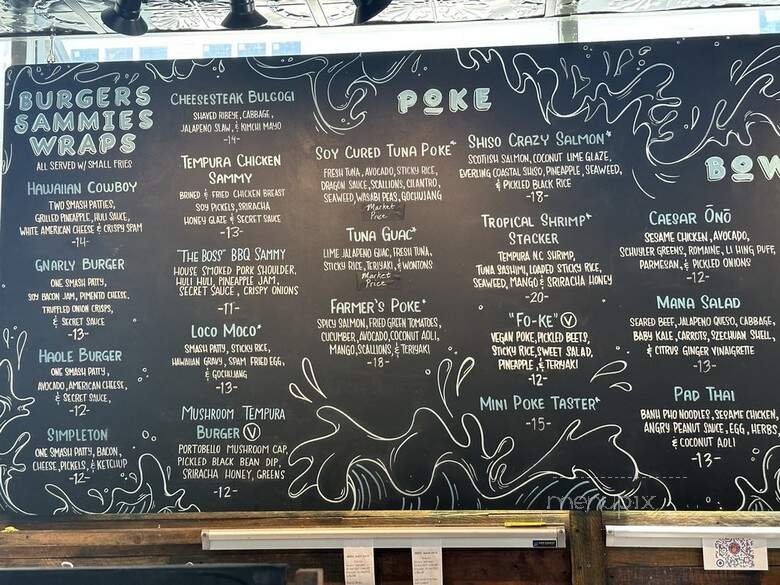 BURGERS
SAMMIES
WRAPS
ALL SERVED W/ SMALL FRIES
HAWAIIAN COWBOY
TWO SMASH PATTIES,
GRILLED PINEAPPLE, HULI SAUCE,
WHITE AMERICAN CHEESE & CRISPY SPAM
-14-
GNARLY BURGER
ONE SMASH PATTY,
SOY BACON JAM, PIMENTO CHEESE,
TRUFFLED ONION CRISPS,
& SECRET SAUCE
-13-
HAOLE BURGER
ONE SMASH PATTY,
AVOCADO, AMERICAN CHEESE,
& SECRET SAUCE,
-12-
SIMPLETON
ONE SMASH PATTY, BACON,
CHEESE, PICKELS, & KETCHUP
-12-
CHEESESTEAK BULGOGI
SHAVED RIBEYE, CABBAGE,
JALAPENO SLAW, & KIMCHI MAYO
-14-
TEMPURA CHICKEN
SAMMY
BRINED & FRIED CHICKEN BREAST
SOY PICKELS, SRIRACHA
HONEY GLAZE & SECRET SAUCE
-13-
"THE BOSS" BBQ SAMMY
HOUSE SMOKED PORK SHOULDER,
HULI HULI, PINEAPPLE JAM,
SECRET SAUCE, CRISPY ONIONS
-11-
LOCO MOCO*
SMASH PATTY, STICKY RICE,
HAWAIIAN GRAVY, SPAM FRIED EGG,
& GOCHUJANG
-13-
MUSHROOM TEMPURA
BURGER V
PORTOBELLO MUSHROOM CAP,
PICKLED BLACK BEAN DIP,
SRIRACHA HONEY, GREENS
-12-
POKE
SOY CURED TUNA POKE*
FRESH TUNA, AVOCADO, STICKY RICE,
DRAGON SAUCE, SCALLIONS, CILANTRO,
SEAWEED, WASABI PEAS, GOCHUJANG
Market
Price
TUNA GUAC*
LIME JALAPENO GUAC, FRESH TUNA,
STICKY RICE, TERIYAKI, & WONTONS
Market
Price
FARMER'S POKE*
SPICY SALMON, FRIED GREEN TOMATOES,
CUCUMBER, AVOCADO, COCONUT AOLI,
MANGO, SCALLIONS, & TERIYAKI
-18-
SHISO CRAZY SALMON*
SCOTISH SALMON, COCONUT LIME GLAZE,
EVERLING COASTAL SHISO, PINEAPPLE, SEAWEED,
& PICKLED BLACK RICE
-18-
TROPICAL SHRIMP*
STACKER
TEMPURA NC SHRIMP,
TUNA SASHIMI, LOADED STICKY RICE,
SEAWEED, MANGO & SRIRACHA HONEY
-20-
"FO-KE" V
VEGAN POKE, PICKLED BEETS,
STICKY RICE, SWEET SALAD,
PINEAPPLE, & TERIYAKI
-12-
MINI POKE TASTER*
-15-
BOW
CAESAR ŌNŌ
SESAME CHICKEN, AVOCADO,
SCHUYLER GREENS, ROMAINE, LI HING PUFF,
PARMESAN, & PICKLED ONIONS
-12-
MANA SALAD
SEARED BEEF, JALAPENO QUESO, CABBAGE,
BABY KALE, CARROTS, SZECHUAN SHELL,
& CITRUS GINGER VINAIGRETTE
-13-
PAD THAI
BANH PHO NOODLES, SESAME CHICKEN,
ANGRY PEANUT SAUCE, EGG, HERBS,
& COCONUT AOLI
-13-
menupix